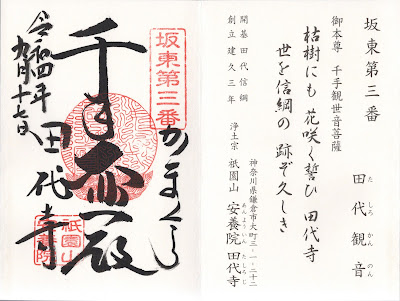 坂東第三番
田代観音
た しろ かん のん
御本尊 千手観世音菩薩
枯樹にも 花咲く誓ひ 田代寺
世を信綱の 跡ぞ久しき
開基田代信綱
創立建久三年
神奈川県鎌倉市大町三-一-二十二
浄土宗 祇園山 安養院 田代寺
あんよういん たしろじ
坂東第三番
かまくら
千手
殿
田代寺
令和四年
九月十七日
祇園山
安養院